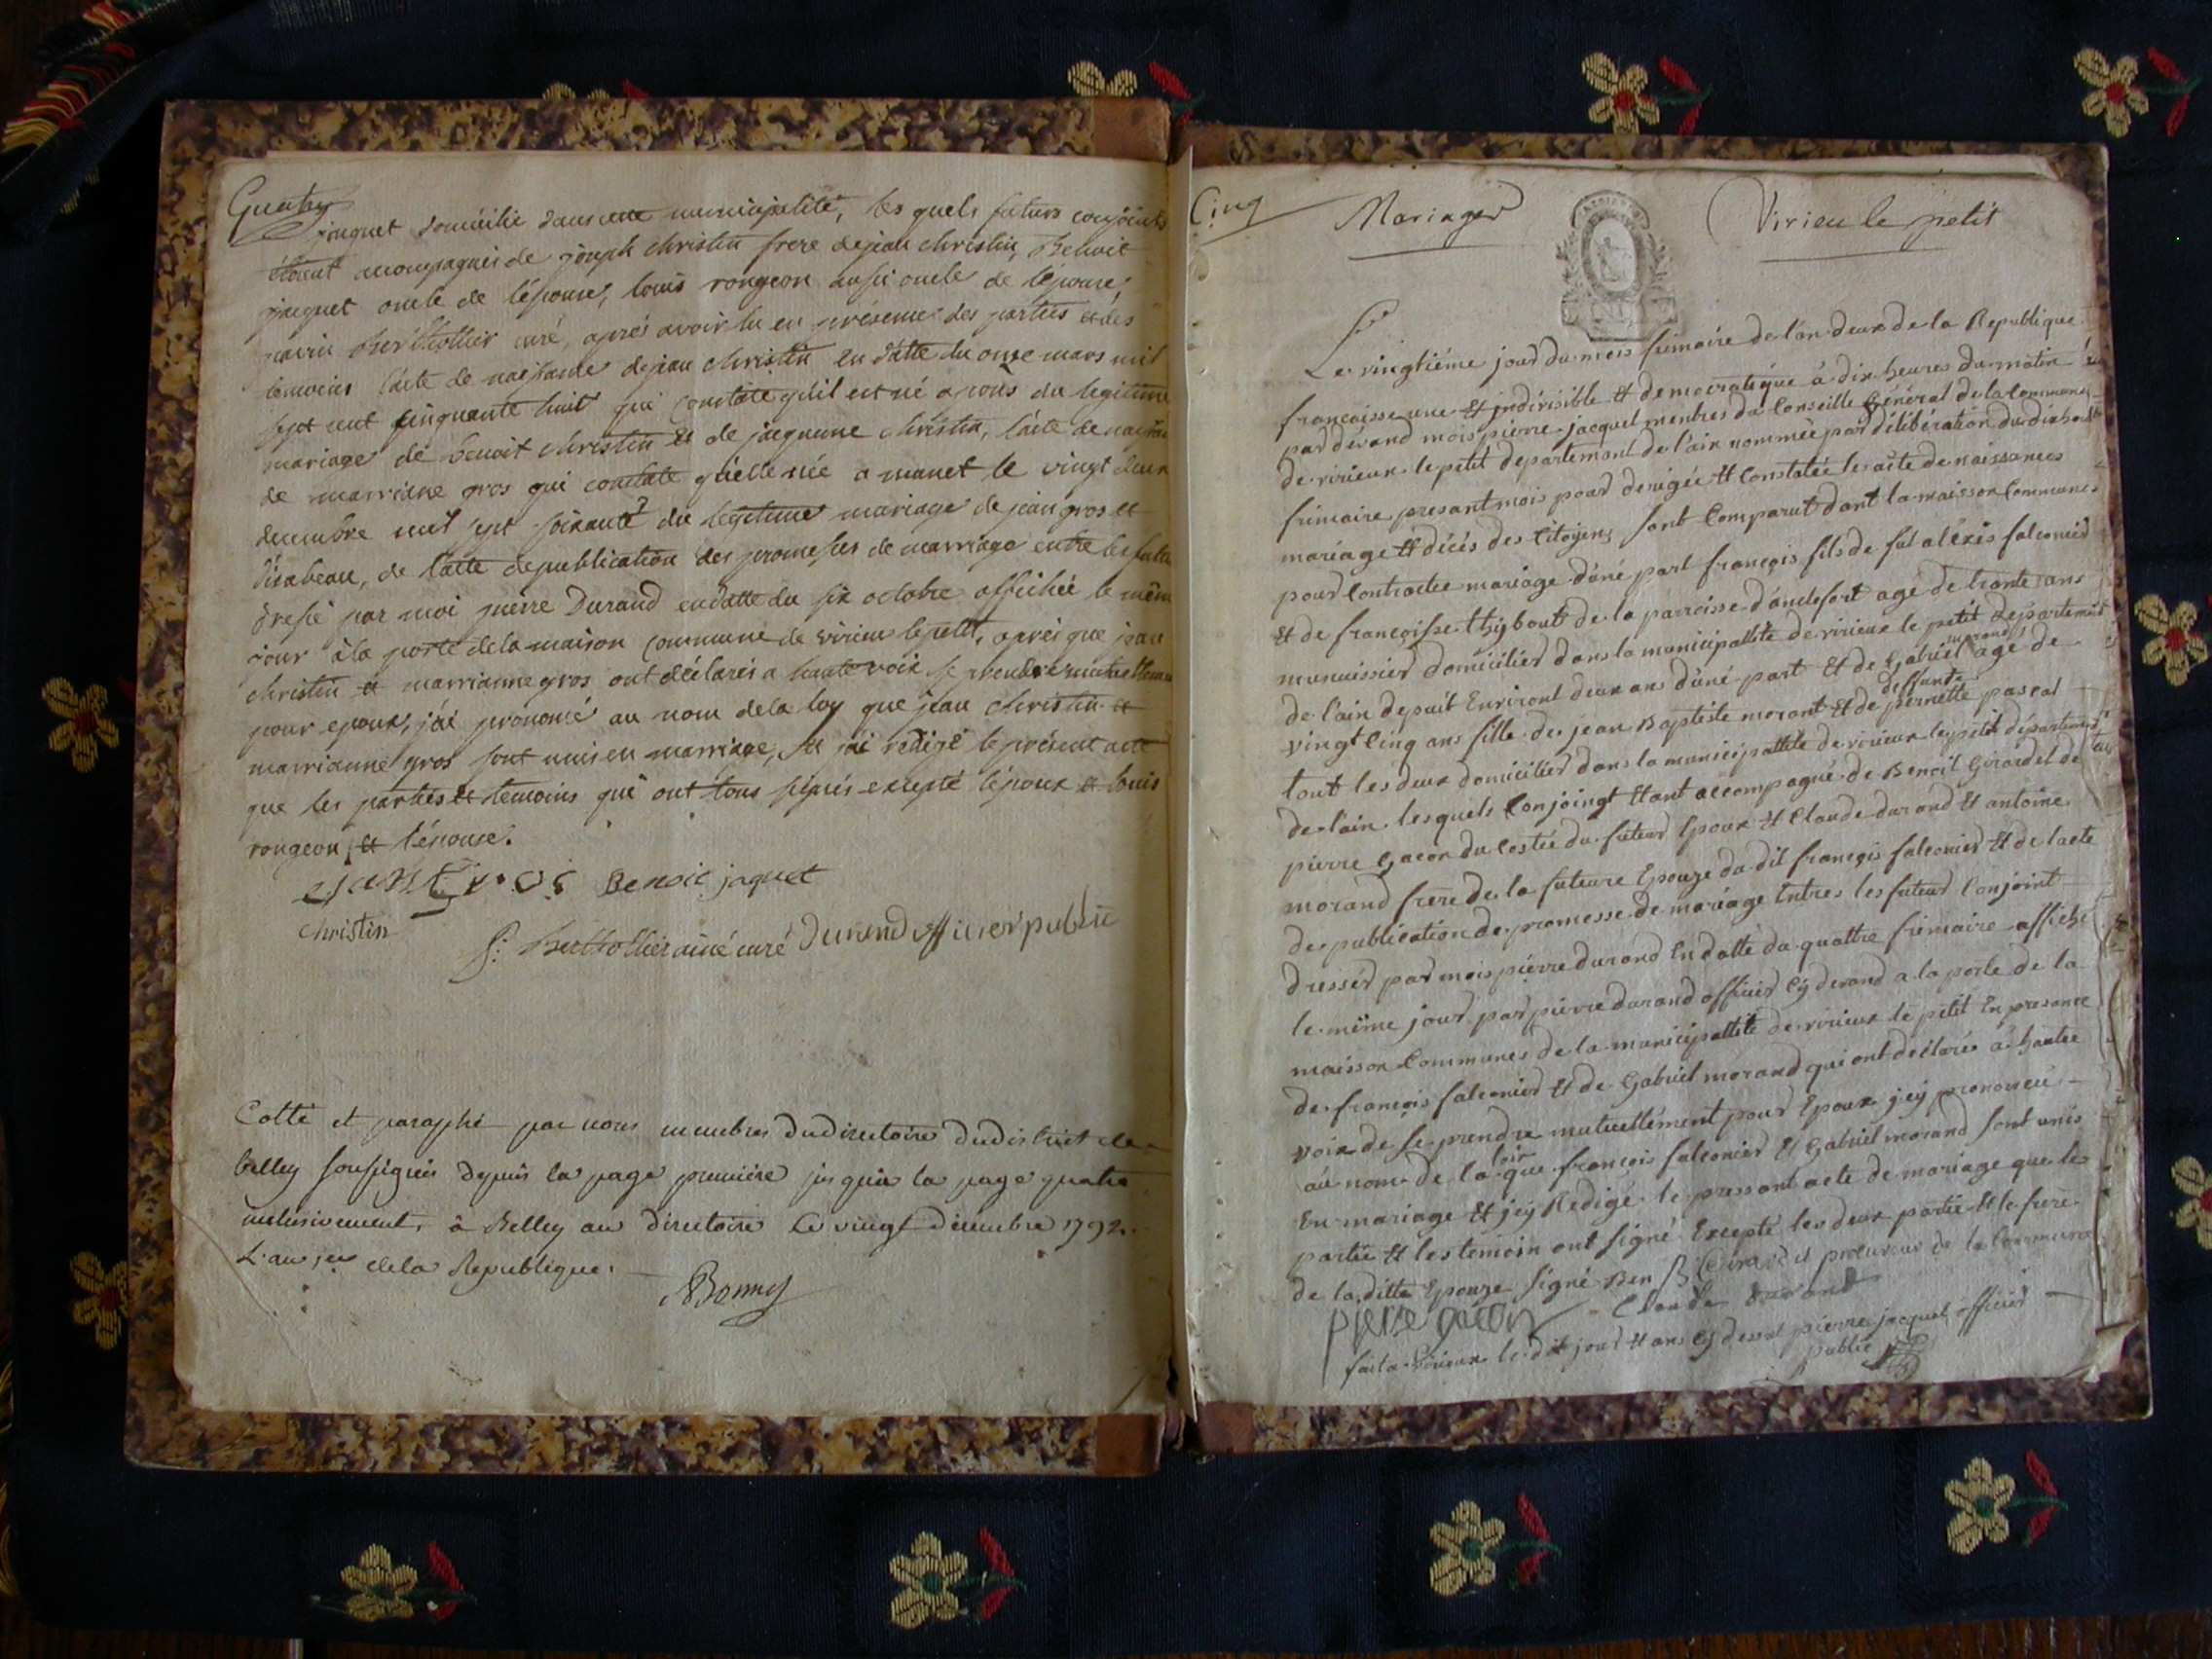 Quatre
jaquet domicilié dans cette municipalité, les quels futurs conjoints
étoient accompagnés de joseph christin frere de jean christin, Benoit
jacquet oncle de l'épouse, louis rongeon aussi oncle de l'épouse,
Berthollier curé, aprés avoir lu en présence des parties et des
temoins l'acte de naissance de jean christin en datte du onze mars mil
sept cent cinquante huit qui constate qu'il est né a du legitime
mariage de benoit christin et de jaqueme christin, l'acte de
de marriane gros qui constate qu'elle née a manet le vingt deux
decembre mil sept soixante du legitime mariage de jean gros et
d'isabeau, de l'acte de publication des promesses de marriage entre les futurs
dressé par moi pierre Durand en datte du six octobre affichée le même
jour à la porte de la maison commune de virieu le petit, aprés que jean
christin et marrianne gros ont déclarés a haute voix se prendre mutuellement
pour epoux, j'ai prononcé au nom de la loy que jean christin et
marrianne gros sont unis en marriage, et j'ai redigé le présent acte
que les parties et temoins qui ont tous signés excepté l'époux et louis
rongeon et l'épouse.
jean Gros Benoit jaquet
christin
Berthollier ainé curé Durand officier public
Cotté et paraphé par nous membres du directoire du district de
belley soussignés depuis la page premiere jusqu'a la page quatre
inclusivement, à Belley au directoire le vingt décembre 1792.
L'an 1er de la Republique.
Bonny
Cinq Mariages Virieu le petit
Le vingtiéme jour du mois frimaire de l'an deux de la Republique
francaisse une et jndivisible et democratique à dix heures du matin
par devand mois pierre jacquet menbres du Conseille Général de la Commune
de virieux le petit departemant de l'ain nommée par délibération du dix
frimaire presant mois pour derigée et Constatée les acte de naissances
mariage et décés des Citoyens sont Comparut dant la maisson Communes
pour Contractée mariage d'une part françois fils de fut aléxis falconier
et de françoisse thybout de la parroisse d'anclefort agé de trante ans
menuissier domicilier dans la municipallité de virieux le petit departement
de l'ain depuit Environt deux ans d'une part et de Gabriel morand agé de
vingt Cinq ans fille de jean Baptiste morant et de deffunte pernette pascal
tout les deux domicilier dans la municipallité de virieux le petit departement
de l'ain lesquels Conjoingt Etant accompagné de Benoit Girardet de
pierre Gacon du Costée du futeur Epoux et Claude durand et antoine
morand frere de la future Epouze du dit françois falconier et de l'acte
de publication de promesse de mariage Entres les futeur Conjoint
dressér par mois pierre durand En datte du quattre frimaire affiché
le même jour par pierre durand officier Cy devand a la porte de la
maisson Communes de la municipallité de virieux le petit En presance
de françois falconier et de Gabriel morand qui ont declarée à hautee
voix de se prendre mutuellément pour Epoux jey prononcée
au nom de la loix que françois falconier et Gabriel morand sont unis
En mariage et jey Redigé le pressant acte de mariage que les
partie et les temoin ont signé Excepté les deux partie et le frere
de la ditte Epouze signé Ben Girardet procureur de la Commune
pierre gacon Claude durand
fait a virieux le dit jour et ans cy desut pierre jacquet officier
public